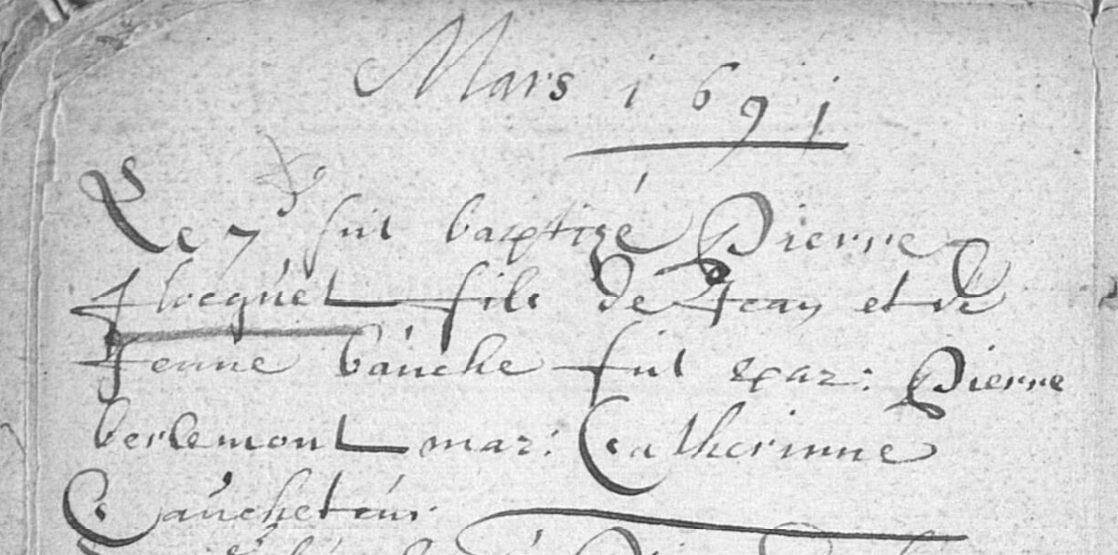 Mars 1691
Le 7 fut baptizé Pierre
flocquet fils de Jean et de
Jenne bauche fut par: Pierre
berlemont mar: Catherinne
Caucheteur